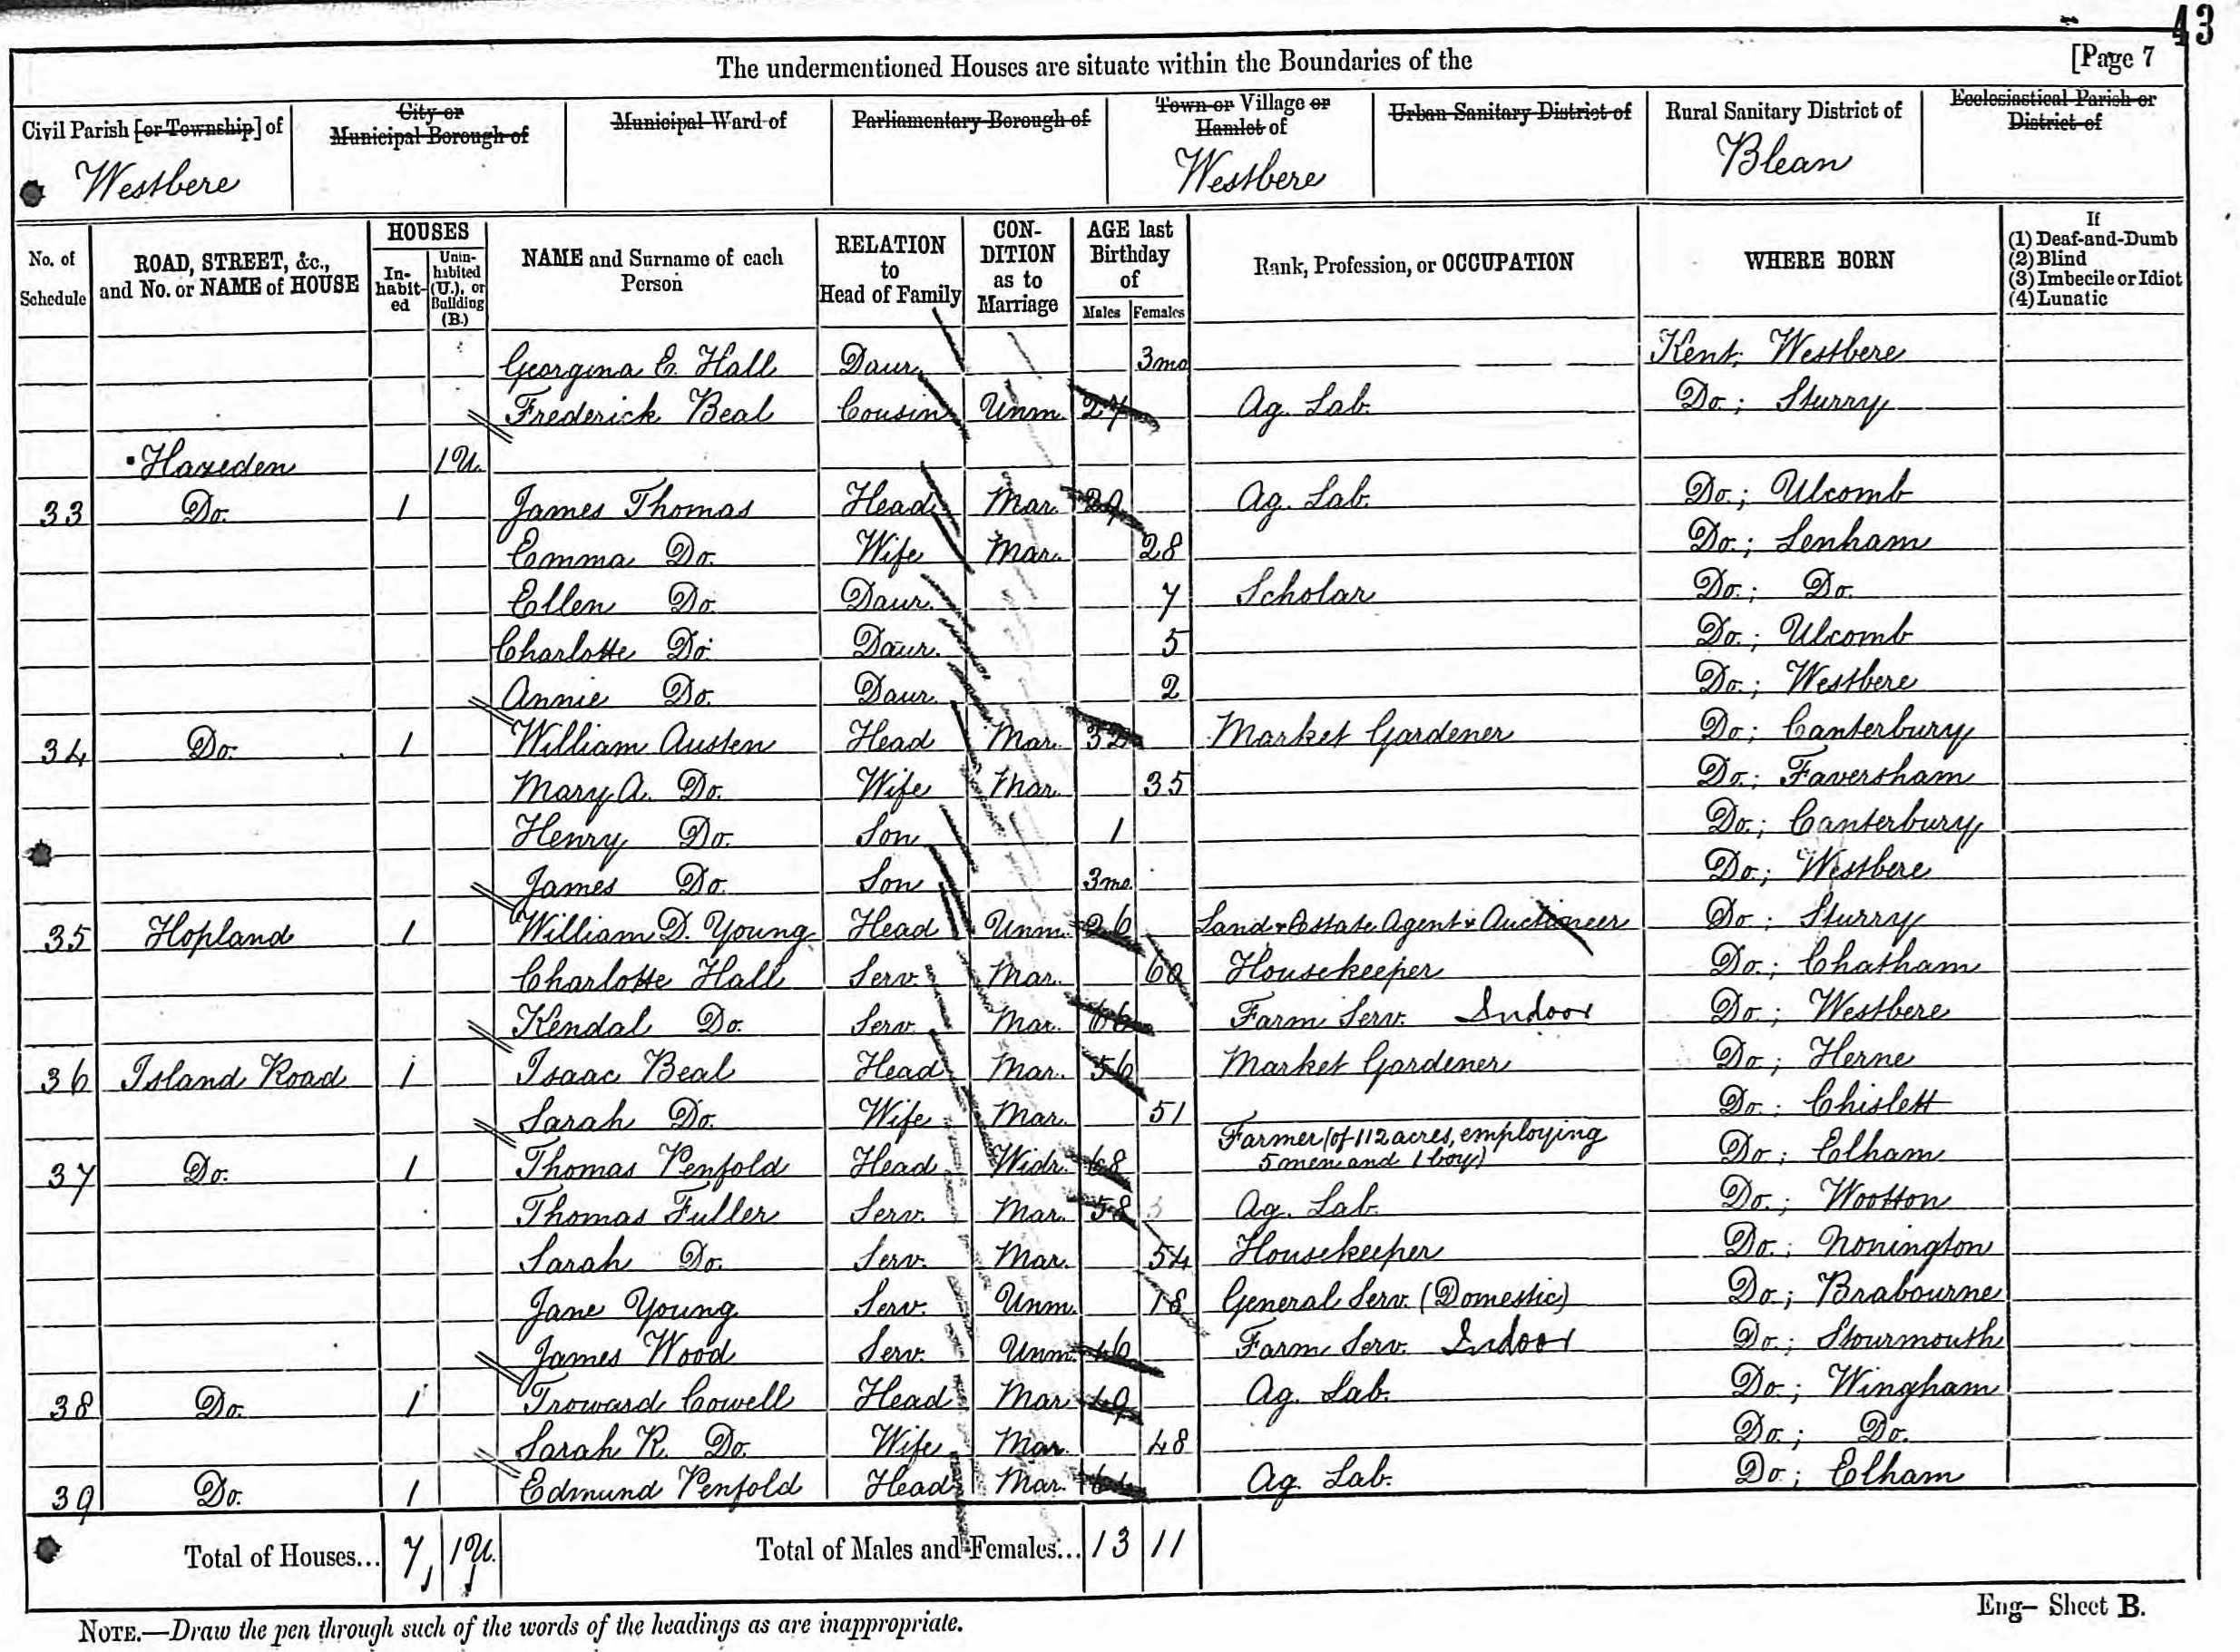 43
The undermentioned Houses are situate within the Boundaries of the [Page 7
Civil Parish [or Township] of Westbere
City or Municipal Borough of
Municipal Ward of
Parliamentary Borough of
Town or Village or Hamlet of Westbere
Urban Sanitary District of
Rural Sanitary District of Blean
Ecclesiastical Parish or District of
No. of Schedule
ROAD, STREET, &c., and No. or NAME of HOUSE
HOUSES
In-habit-ed
Unin-habited (U.), or Building (B.)
NAME and Surname of each Person
RELATION to Head of Family
CON-DITION as to Marriage
AGE last Birthday of
Males Females
Rank, Profession, or OCCUPATION
WHERE BORN
If
(1) Deaf-and-Dumb
(2) Blind
(3) Imbecile or Idiot
(4) Lunatic
Georgina E. Hall Daur. 3mo Kent; Westbere
Frederick Beal Cousin Unm. 27 Ag. Lab. Do.; Sturry
Haxeden 1U.
33 Do. 1 James Thomas Head Mar. 29 Ag. Lab. Do.; Ulcomb
Emma Do. Wife Mar. 28 Do.; Lenham
Ellen Do. Daur. 7 Scholar Do.; Do.
Charlotte Do. Daur. 5 Do.; Ulcomb
Annie Do. Daur. 2 Do.; Westbere
34 Do. 1 William Austen Head Mar. 32 Market Gardener Do.; Canterbury
Mary A. Do. Wife Mar. 35 Do.; Faversham
Henry Do. Son 1 Do.; Canterbury
James Do. Son 3mo. Do.; Westbere
35 Hopland 1 William D. Young Head Unm. 26 Land & Estate Agent & Auctioneer Do.; Sturry
Charlotte Hall Serv. Mar. 60 Housekeeper Do.; Chatham
Kendal Do. Serv. Mar. 66 Farm Serv. Indoor Do.; Westbere
36 Island Road 1 Isaac Beal Head Mar. 56 Market Gardener Do.; Herne
Sarah Do. Wife Mar. 51 Do.; Chislett
37 Do. 1 Thomas Penfold Head Widr. 68 Farmer (of 112 acres, employing 5 men and 1 boy) Do.; Elham
Thomas Fuller Serv. Mar. 58 Ag. Lab. Do.; Wootton
Sarah Do. Serv. Mar. 54 Housekeeper Do.; Nonington
Jane Young Serv. Unm. 18 General Serv. (Domestic) Do.; Brabourne
James Wood Serv. Unm. 46 Farm Serv. Indoor Do.; Stourmouth
38 Do. 1 Troward Cowell Head Mar. 49 Ag. Lab. Do.; Wingham
Sarah R. Do. Wife Mar. 48 Do.; Do.
39 Do. 1 Edmund Penfold Head Mar. Ag. Lab. Do.; Elham
Total of Houses... 7 1U. Total of Males and Females... 13 11
Eng— Sheet B.
NOTE.—Draw the pen through such of the words of the headings as are inappropriate.